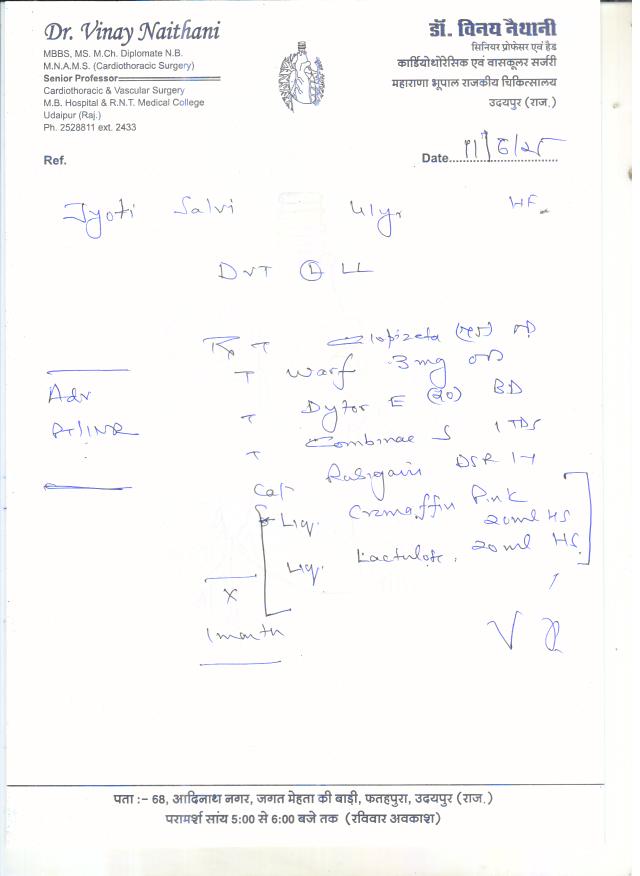 Dr. Vinay Naithani
MBBS, MS. M.Ch. Diplomate N.B.
M.N.A.M.S. (Cardiothoracic Surgery)
Senior Professor
Cardiothoracic & Vascular Surgery
M.B. Hospital & R.N.T. Medical College
Udaipur (Raj.)
Ph. 2528811 ext. 2433
डॉ. विनय नैथानी
सिनियर प्रोफेसर एवं हैड
कार्डियोथोरेसिक एवं वासकूलर सर्जरी
महाराणा भूपाल राजकीय चिकित्सालय
उदयपुर (राज.)
Ref.
Date 11/6/25
Jyoti Salvi 41yr
DVT (L) LL
Rx T Clopizeta (75) OD
T Warf 3mg OD
T Dytor E (20) BD
T Combinae S 1 TDS
T
Cap Rasigain DSR 1-1
Liq. Cremaffin Pink 20ml HS
Liq. Lactulose. 20ml HS.
Adv
PT/INR
X
1 month
पता :– 68, आदिनाथ नगर, जगत मेहता की बाड़ी, फतहपुरा, उदयपुर (राज.)
परामर्श सांय 5:00 से 6:00 बजे तक (रविवार अवकाश)